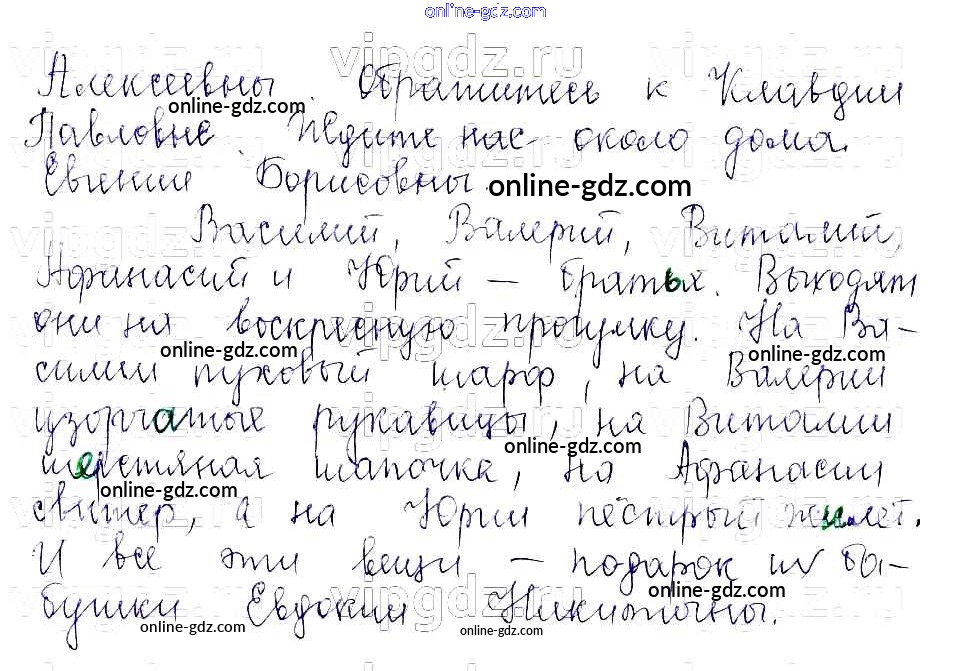 online-gdz.com
Алексеевны. Обратитесь к Клавдии
online-gdz.com
Павловне. Ждите нас около дома
Евгении Борисовны.
online-gdz.com
Василий, Валерий, Виталий,
Афанасий и Юрий — братья. Выходят
они на воскресную прогулку. На Ва-
online-gdz.com online-gdz.com
силии пуховый шарф, на Валерии
узорчатые рукавицы, на Виталии
online-gdz.com
шерстяная шапочка, на Афанасии
online-gdz.com
свитер, а на Юрии пёстрый жилет.
online-gdz.com
И все эти вещи — подарок их ба-
online-gdz.com
бушки Евдокии Никитичны.
online-gdz.com online-gdz.com